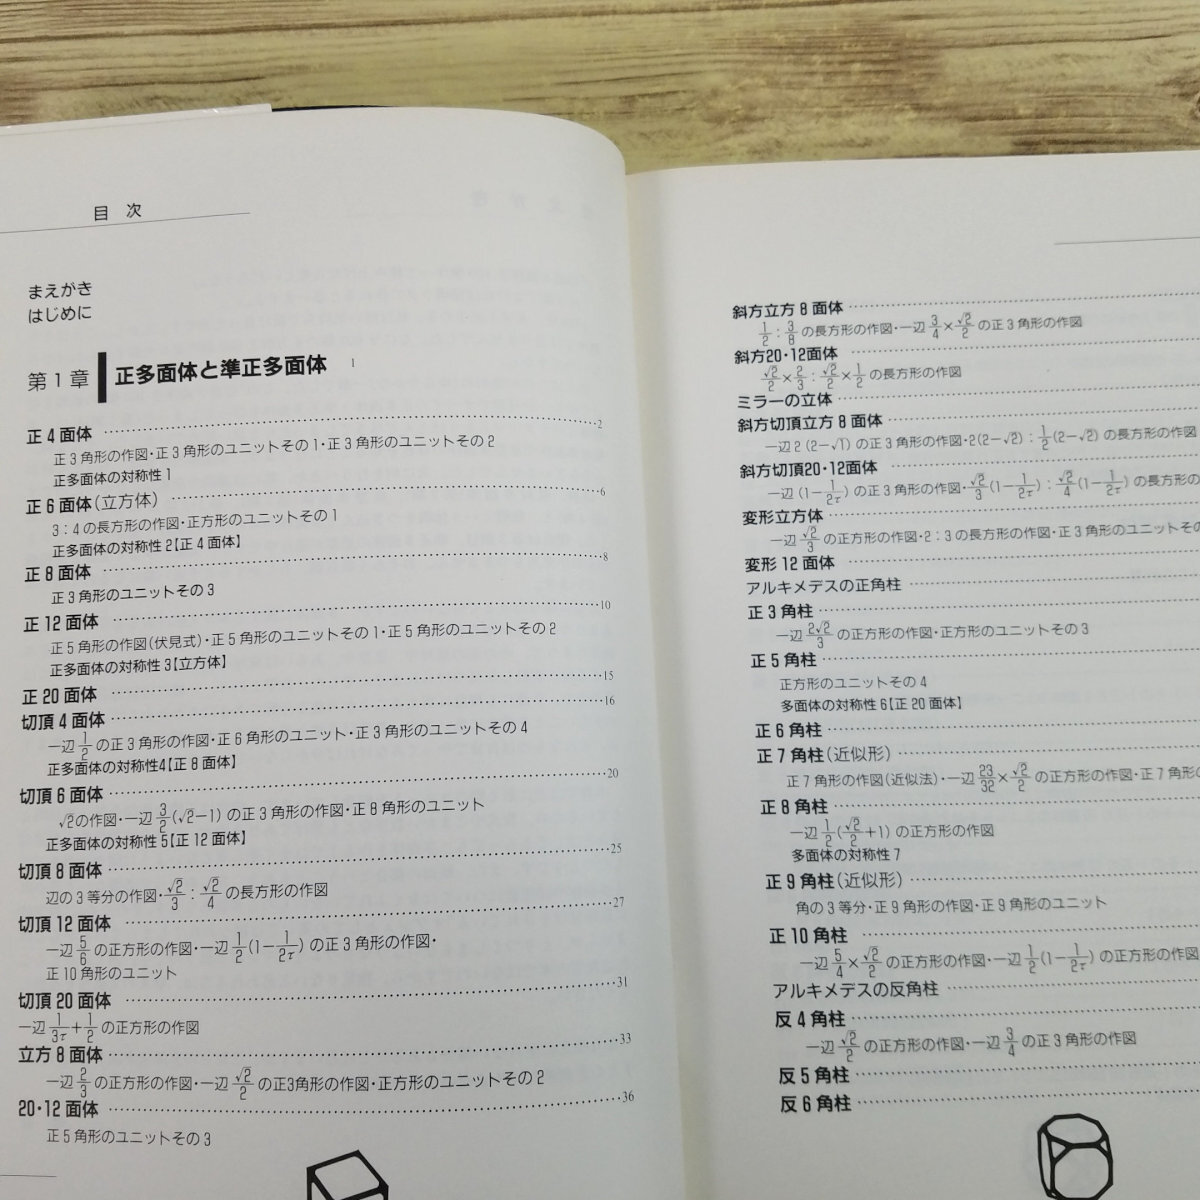 目 次
まえがき
はじめに
第1章 正多面体と準正多面体 1
正4面体 2
正3角形の作図・正3角形のユニットその1・正3角形のユニットその2
正多面体の対称性1
正6面体(立方体) 6
3:4の長方形の作図・正方形のユニットその1
正多面体の対称性2【正4面体】
正8面体 8
正3角形のユニットその3
正12面体 10
正5角形の作図(伏見式)・正5角形のユニットその1・正5角形のユニットその2
正多面体の対称性3【立方体】
正20面体 15
切頂4面体 16
一辺1/2の正3角形の作図・正6角形のユニット・正3角形のユニットその4
正多面体の対称性4【正8面体】
切頂6面体 20
√2の作図・一辺3/2(√2−1)の正3角形の作図・正8角形のユニット
正多面体の対称性5【正12面体】
切頂8面体 25
辺の3等分の作図・√2/3:√2/4の長方形の作図
切頂12面体 27
一辺5/6の正方形の作図・一辺1/2(1−1/2τ)の正3角形の作図・
正10角形のユニット
切頂20面体 31
一辺1/3τ+1/2の正方形の作図
立方8面体 33
一辺2/3の正方形の作図・一辺√2/2の正3角形の作図・正方形のユニットその2
20・12面体 36
正5角形のユニットその3
斜方立方8面体
1/2:3/8の長方形の作図・一辺3/4×√2/2の正3角形の作図
斜方20・12面体
√2/2×2/3:√2/2×1/2の長方形の作図
ミラーの立体
斜方切頂立方8面体
一辺2(2−√1)の正3角形の作図・2(2−√2):1/2(2−√2)の長方形の作図
斜方切頂20・12面体
一辺(1−1/2τ)の正3角形の作図・√2/3(1−1/2τ):√2/4(1−1/2τ)の長方形の
変形立方体
一辺√2/3の正方形の作図・2:3の長方形の作図・正3角形のユニットその
変形12面体
アルキメデスの正角柱
正3角柱
一辺2√2/3の正方形の作図・正方形のユニットその3
正5角柱
正方形のユニットその4
多面体の対称性6【正20面体】
正6角柱
正7角柱(近似形)
正7角形の作図(近似法)・一辺23/32×√2/2の正方形の作図・正7角形の
正8角柱
一辺1/2(√2/2+1)の正方形の作図
多面体の対称性7
正9角柱(近似形)
角の3等分・正9角形の作図・正9角形のユニット
正10角柱
一辺5/4×√2/2の正方形の作図・一辺1/2(1−1/2τ)の正方形の作図
アルキメデスの反角柱
反4角柱
一辺√2/2の正方形の作図・一辺3/4の正3角形の作図
反5角柱
反6角柱